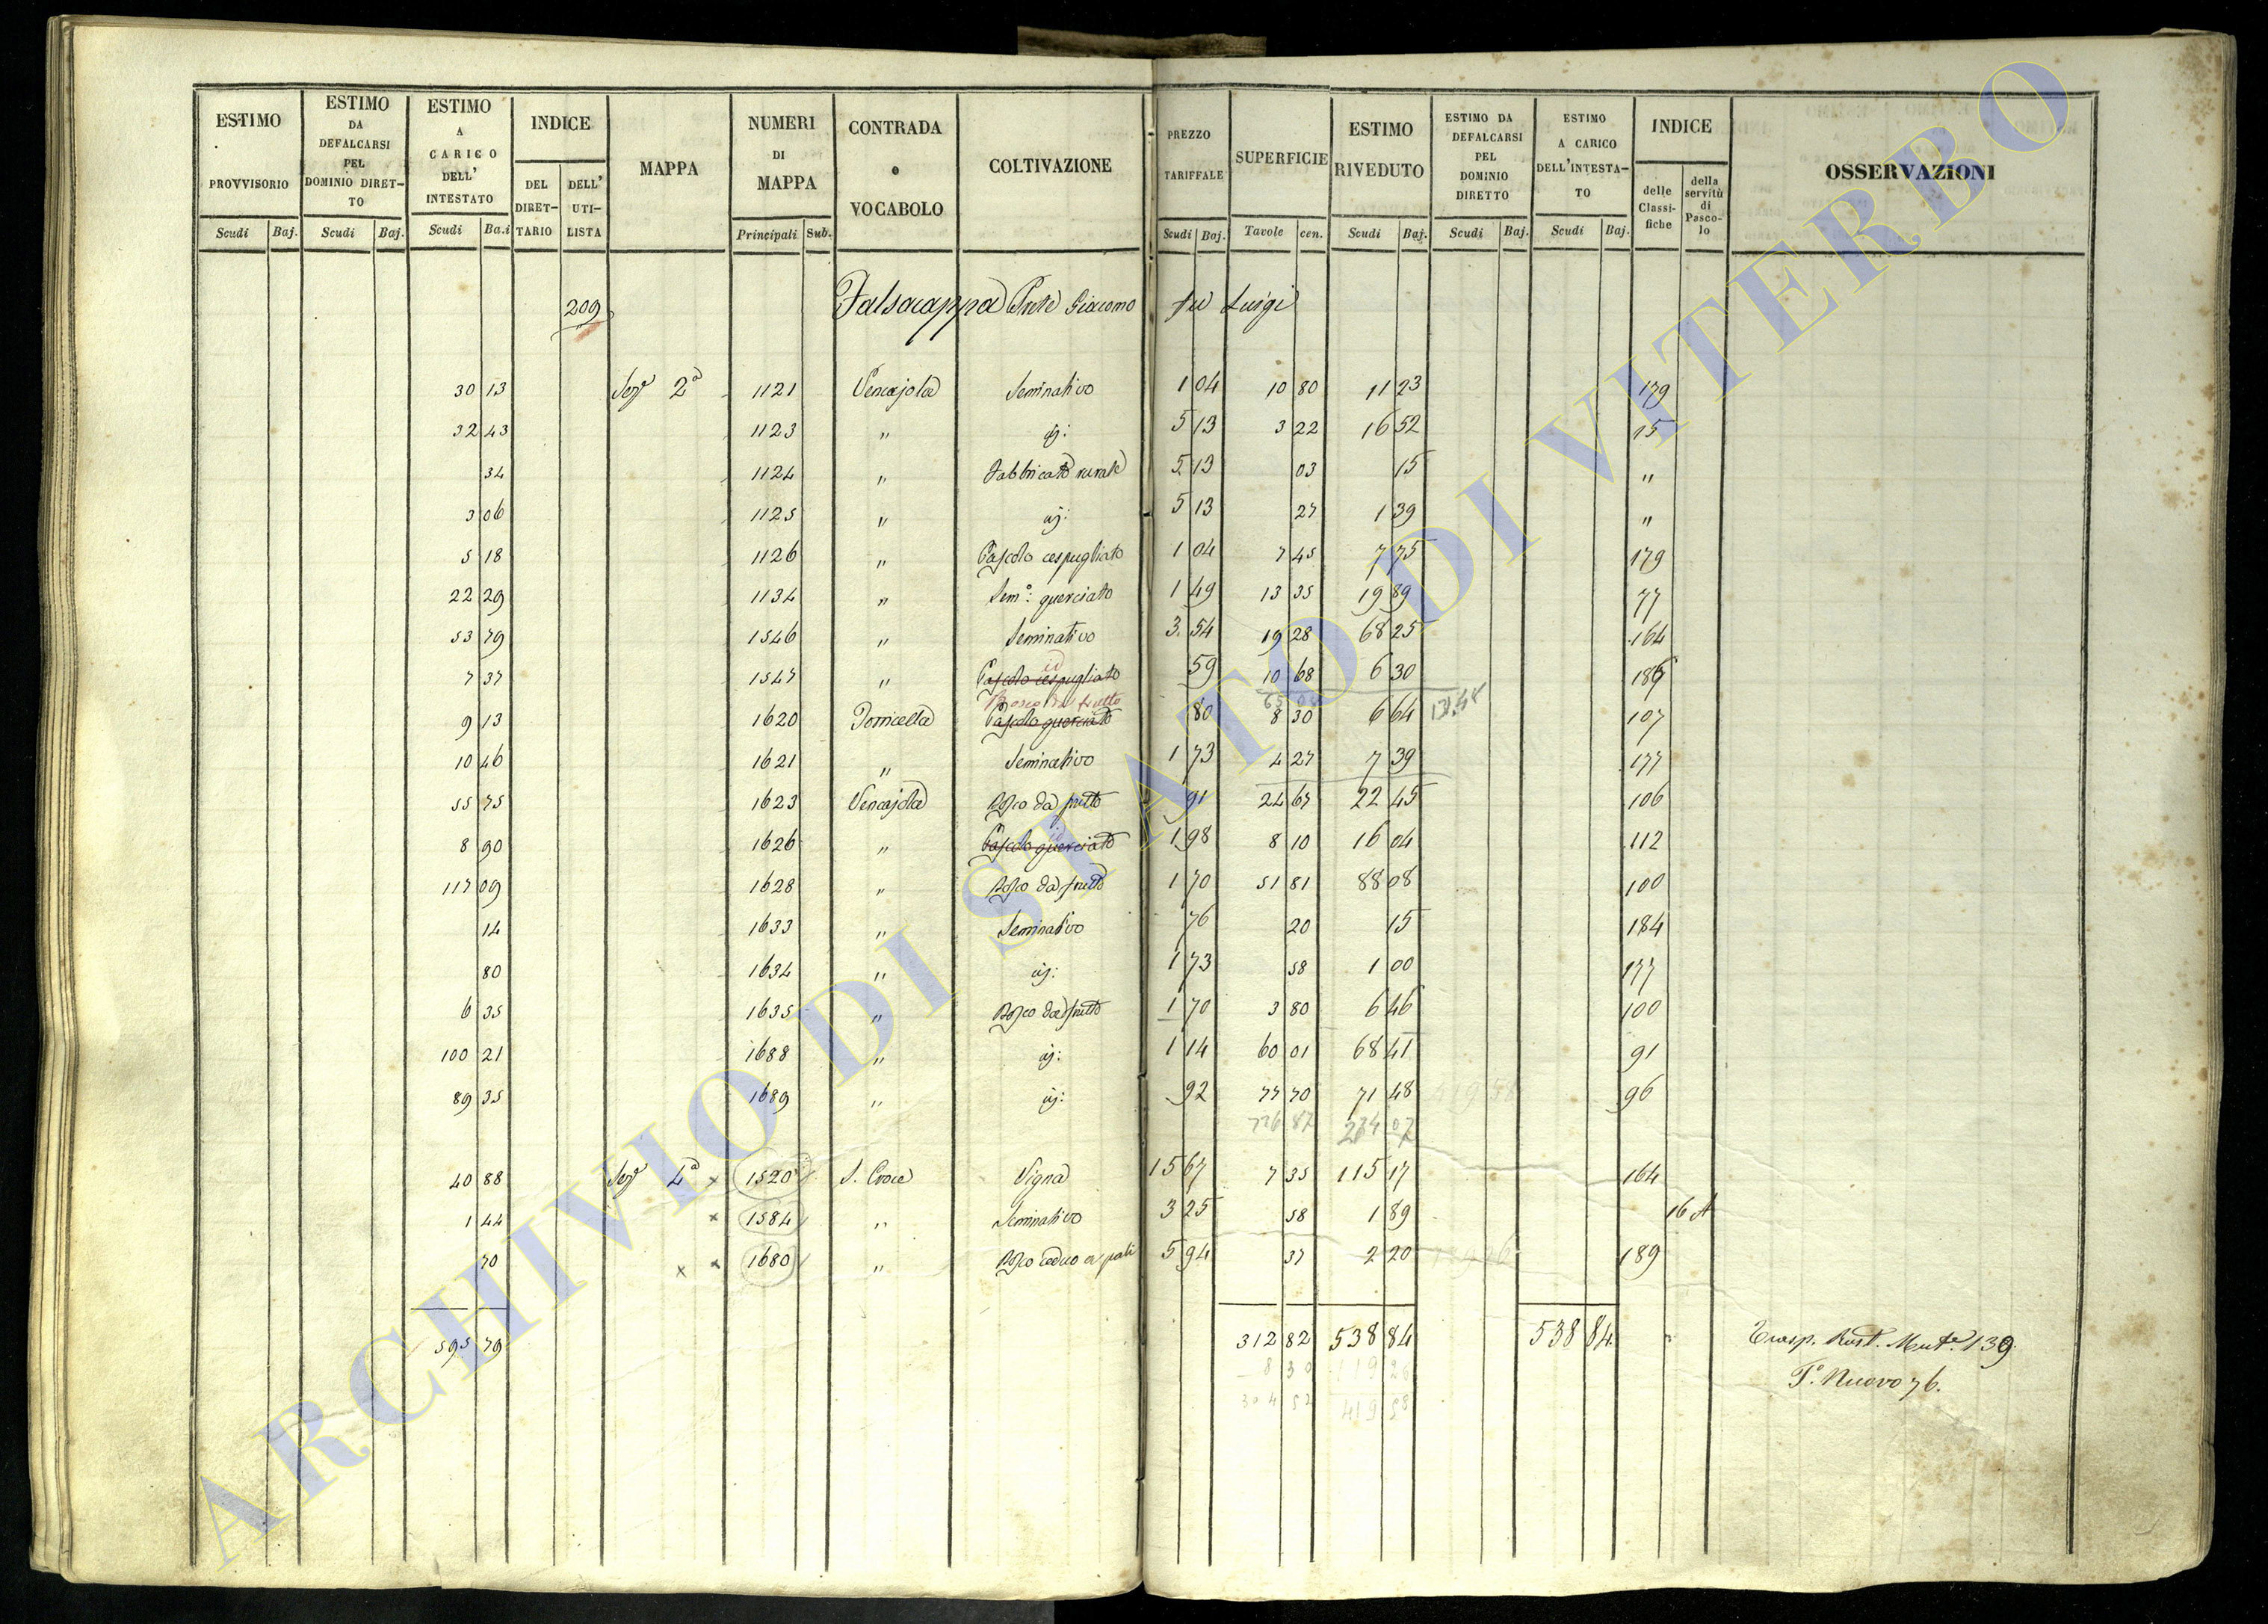 ESTIMO PROVVISORIO
Scudi Baj.
ESTIMO DA DEFALCARSI PEL DOMINIO DIRET-TO
Scudi Baj.
ESTIMO A CARICO DELL' INTESTATO
Scudi Ba.i
INDICE
DEL DIRET-TARIO
DELL' UTI-LISTA
MAPPA
NUMERI DI MAPPA
Principali Sub.
CONTRADA o VOCABOLO
COLTIVAZIONE
PREZZO TARIFFALE
Scudi Baj.
SUPERFICIE
Tavole cen.
ESTIMO RIVEDUTO
Scudi Baj.
ESTIMO DA DEFALCARSI PEL DOMINIO DIRETTO
Scudi Baj.
ESTIMO A CARICO DELL'INTESTA-TO
Scudi Baj.
INDICE
delle Classi-fiche
della servitù di Pasco-lo
OSSERVAZIONI
209 Falsacappa Prete Giacomo fu Luigi
30 13 Sezе 2a 1121 Vencajola Seminativo 1 04 10 80 11 23 179
32 43 1123 " id: 5 13 3 22 16 52 15
34 1124 " Fabbricato rurale 5 13 03 15 "
3 06 1125 " id: 5 13 27 1 39 "
5 18 1126 " Pascolo cespugliato 1 04 7 45 7 75 179
22 29 1134 " Semo: querciato 1 49 13 35 19 89 77
53 79 1546 " Seminativo 3 54 19 28 68 25 164
id
7 37 1547 " Pascolo cespugliato 59 10 68 6 30 186
Bosco da frutto
9 13 1620 Torricella Pascolo querciato 80 8 30 6 64 107
10 46 1621 " Seminativo 1 73 4 27 7 39 177
55 75 1623 Vencajola Bosco da frutto 91 24 67 22 45 106
id
8 90 1626 " Pascolo querciato 1 98 8 10 16 04 112
117 09 1628 " Bosco da frutto 1 70 51 81 88 08 100
14 1633 " Seminativo 76 20 15 184
80 1634 " id: 1 73 58 1 00 177
6 35 1635 " Bosco da frutto 1 70 3 80 6 46 100
100 21 1688 " id: 1 14 60 01 68 41 91
89 35 1689 " id: 92 77 70 71 48 96
40 88 Seze 4a x 1520 S. Croce Vigna 15 67 7 35 115 17 164
1 44 x 1584 " Seminativo 3 25 58 1 89 16 A
70 x x 1680 " Bosco ceduo a pali 5 94 37 2 20 189
595 79 312 82 538 84 538 84 Trasp. Rust. Mut.e 139
8 30 119 26 T.o Nuovo 76.
304 52 419 58
ARCHIVIO DI STATO DI VITERBO